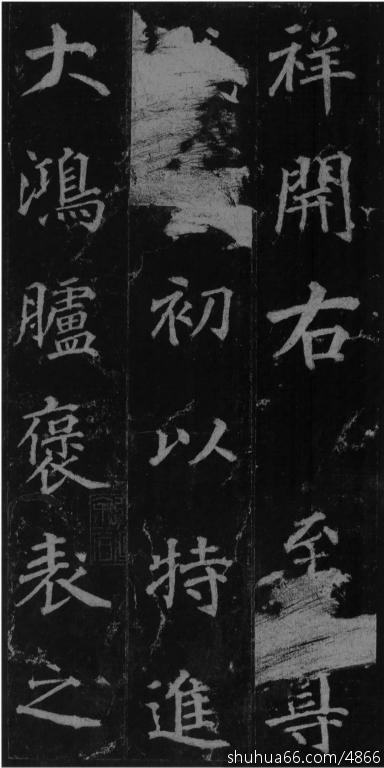 祥開右至
初以特進
大鴻臚褒表之
shuhua66.com/4866